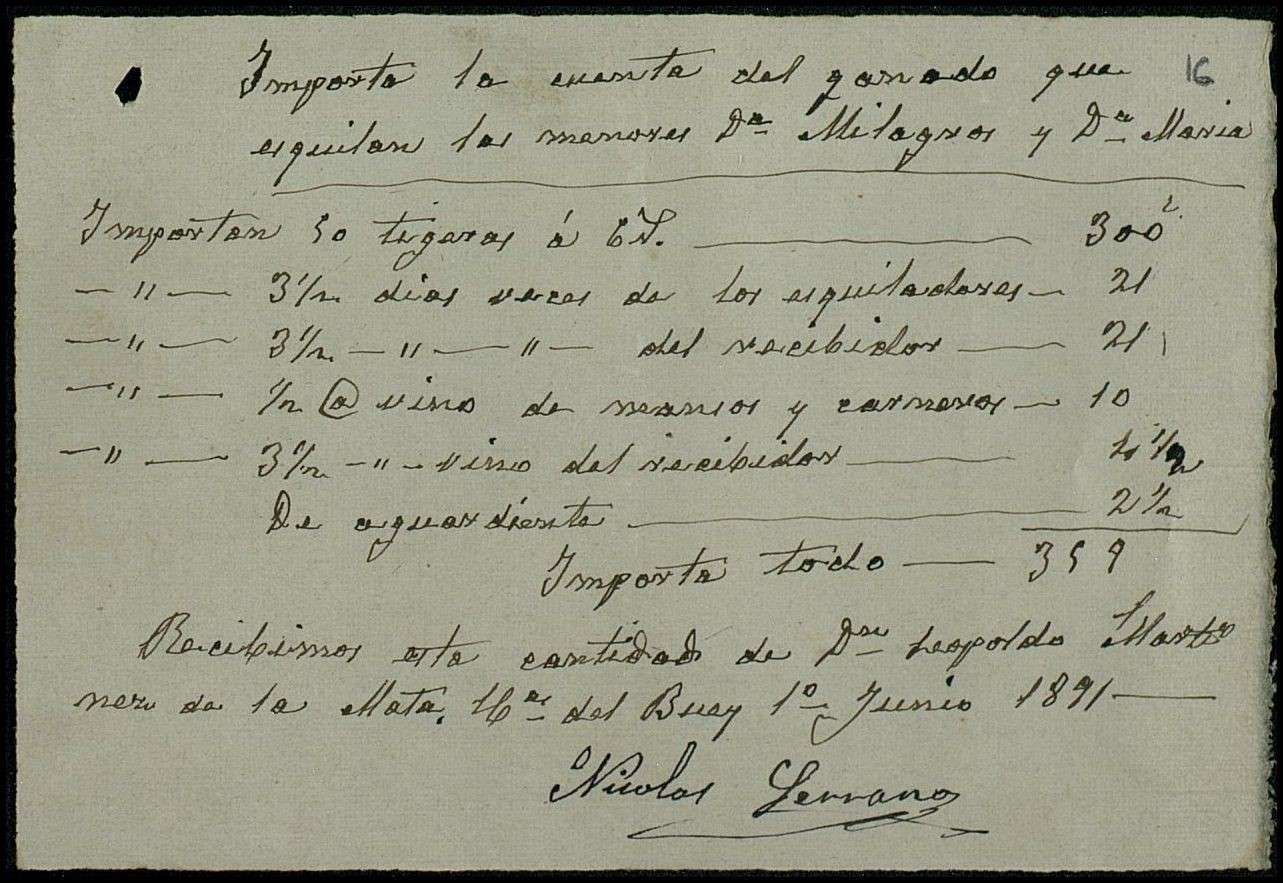 16
Importa la cuenta del ganado que
esquilan las menores Dª Milagros y Dª Maria
Importan 50 tigeras á 6 r. 300 r
— " — 3 1/2 dias veces de los esquiladores — 21
— " — 3 1/2 — " — " — del recibidor — 21
— " — 1/2 @ vino de mansos y carneros — 10
— " — 3 1/2 — " — vino del recibidor — 4 1/2
De aguardiente — 2 1/2
Importa todo — 359
Recibimos esta cantidad de Dn Leopoldo Marti
nez de la Mata. del Buey 1º Junio 1891 —
Nicolas Serrano